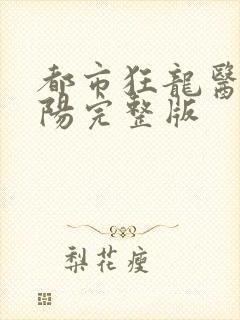 都市狂龍醫
陽完整版
梨花瘦